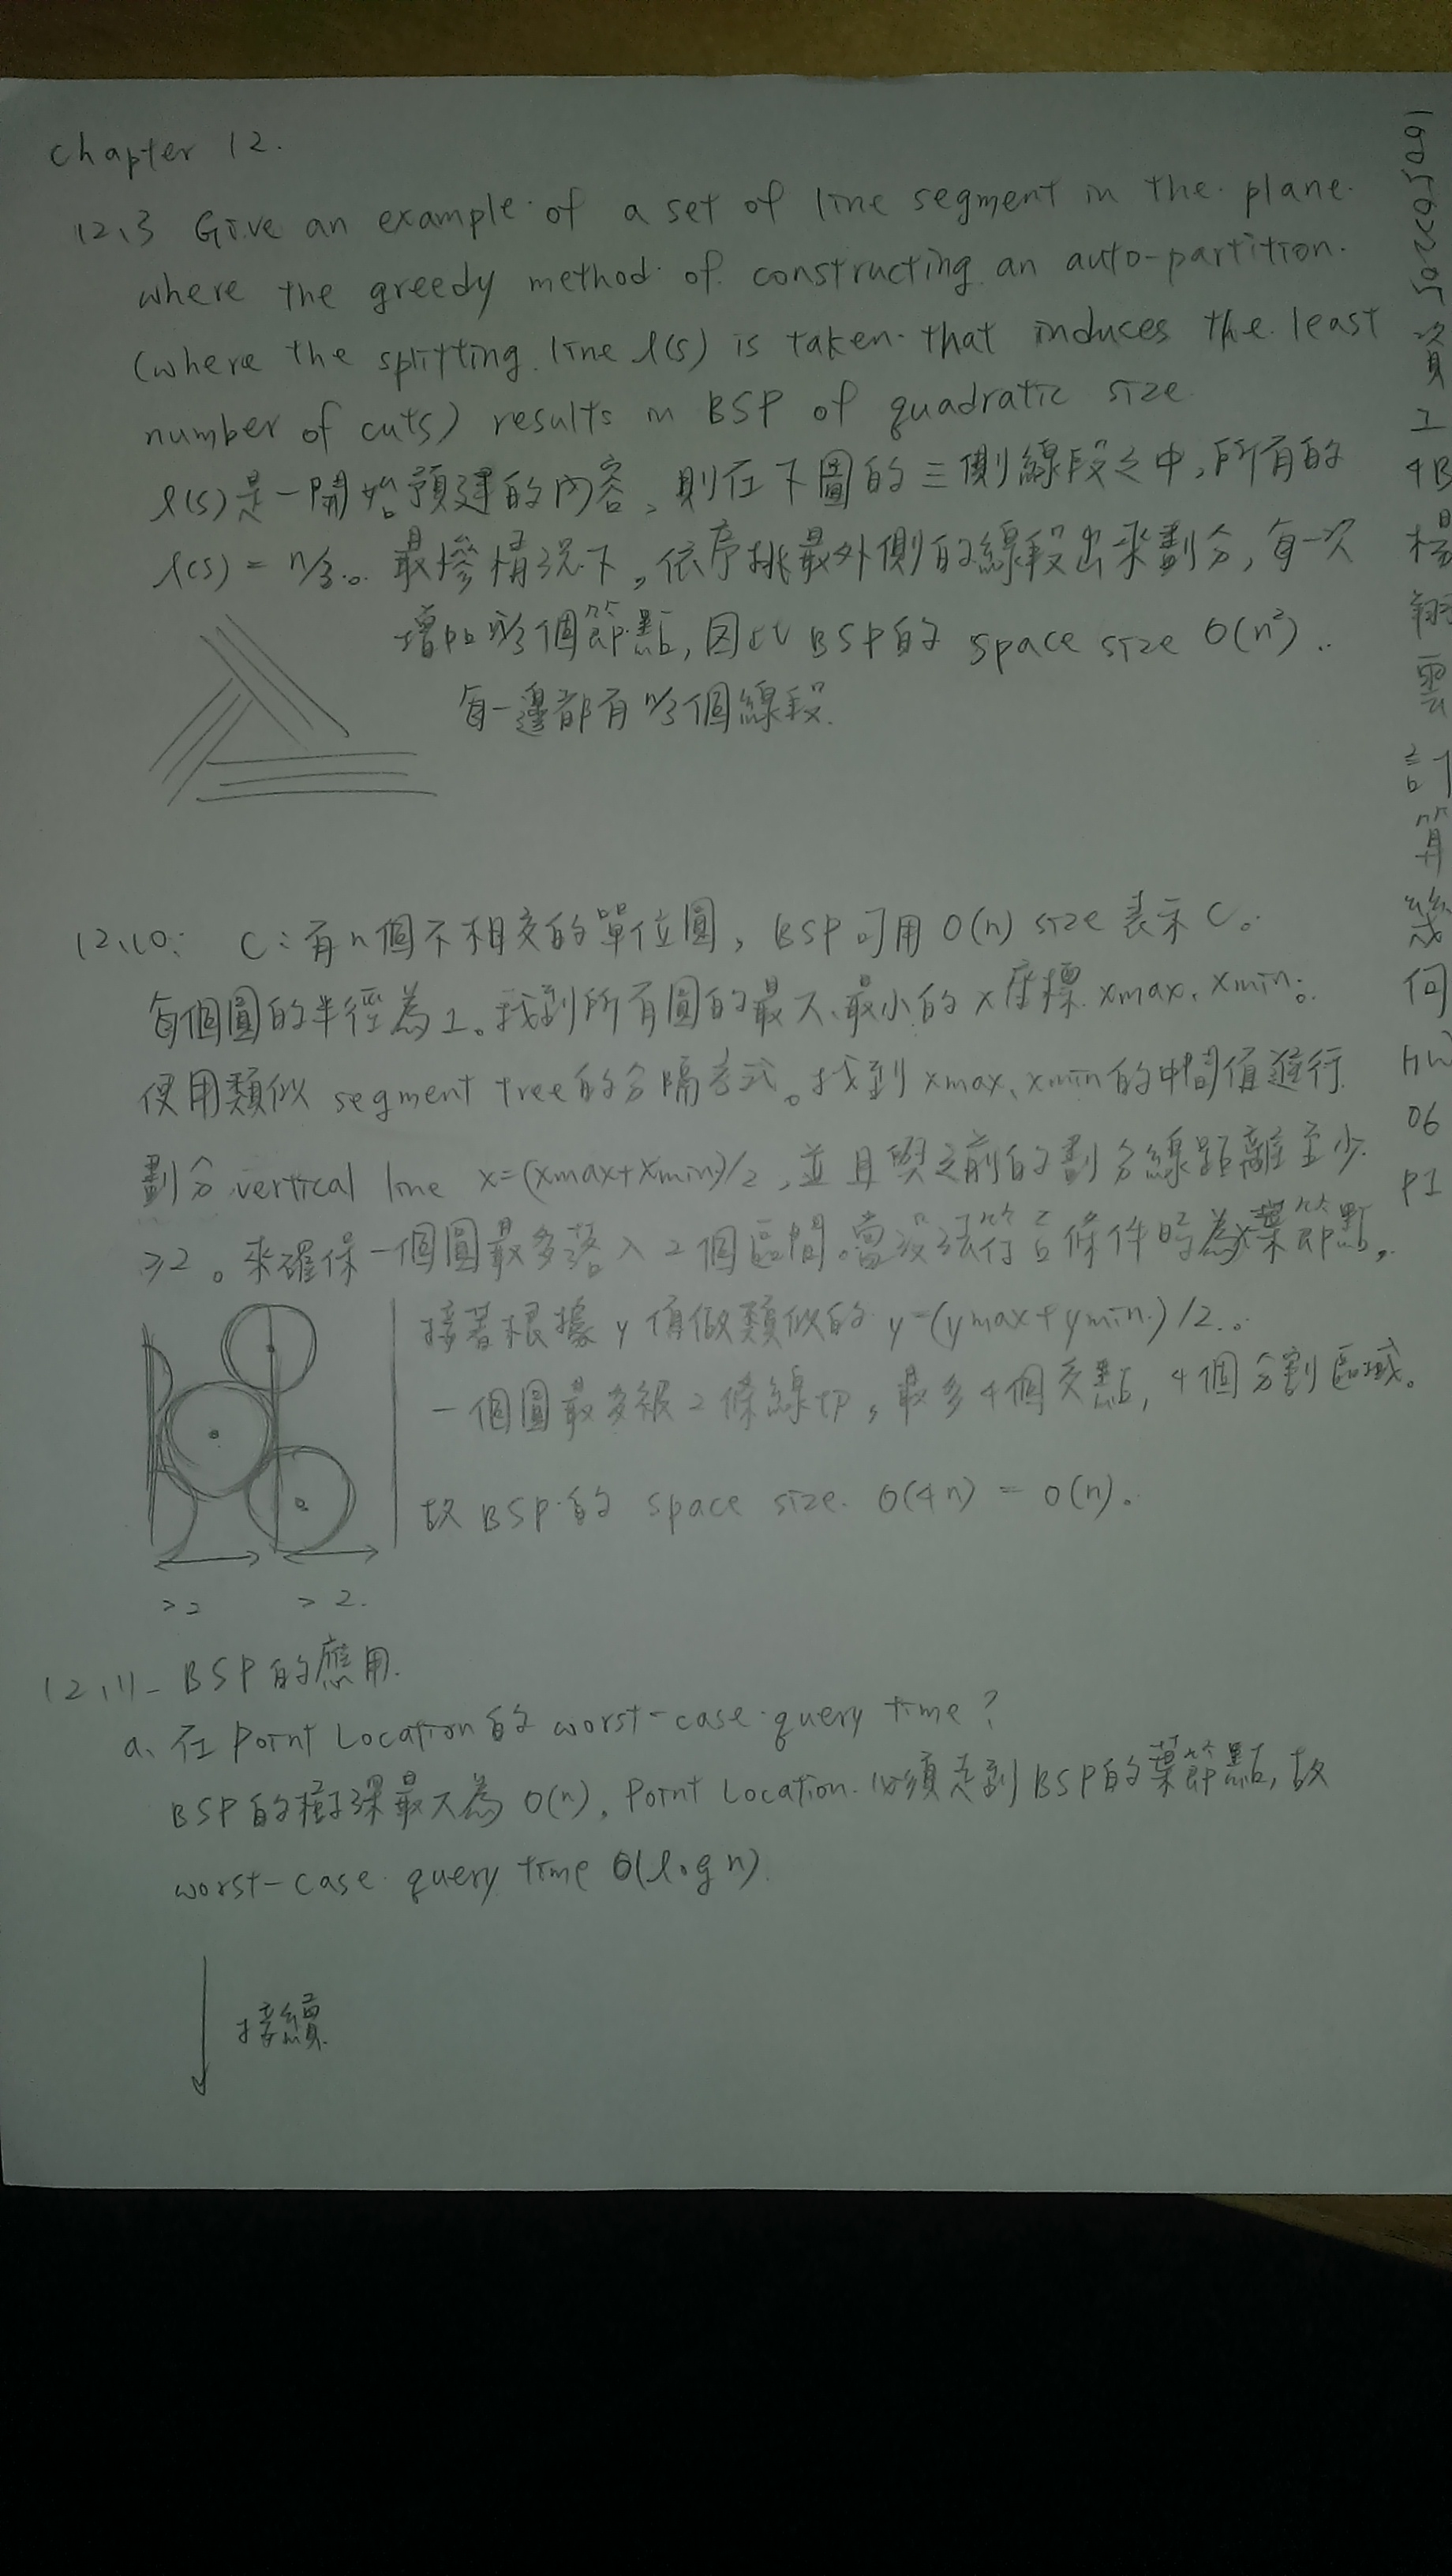 Chapter 12.
12.3 Give an example of a set of line segment in the plane.
where the greedy method of constructing an auto-partition.
(where the splitting line l(s) is taken that induces the least
number of cuts) results in BSP of quadratic size
l(s)是一開始預建的內容,則在下圖的三側線段之中,所有的
l(s) = n/3。最慘情況下,依序挑最外側的線段出來劃分,每一次
增加 n/3 個節點,因此 BSP的 space size O(n²)..
每一邊都有 n/3 個線段.
12.10: C:有n個不相交的單位圓, BSP可用 O(n) size 表示 C。
每個圓的半徑為1。找到所有圓的最大、最小的 x 座標 xmax、xmin。
使用類似 segment tree的分隔方式。找到 xmax、xmin的中間值進行
劃分 vertical line x=(xmax+xmin)/2,並且與之前的劃分線距離至少
≥2。來確保一個圓最多落入2個區間。當沒法符合條件時為葉節點。
接著根據 y 值做類似的 y=(ymax+ymin)/2。
一個圓最多被2條線切,最多4個交點,4個分割區域。
故 BSP的 space size O(4n) = O(n)。
>2 >2.
12.11- BSP的應用.
a. 在 Point Location的 worst-case query time?
BSP的樹深最大為 O(n), Point Location 必須走到 BSP的葉節點,故
worst-case query time O(log n).
接續
資工4B 楊翔雲 計算幾何 HW06 P1